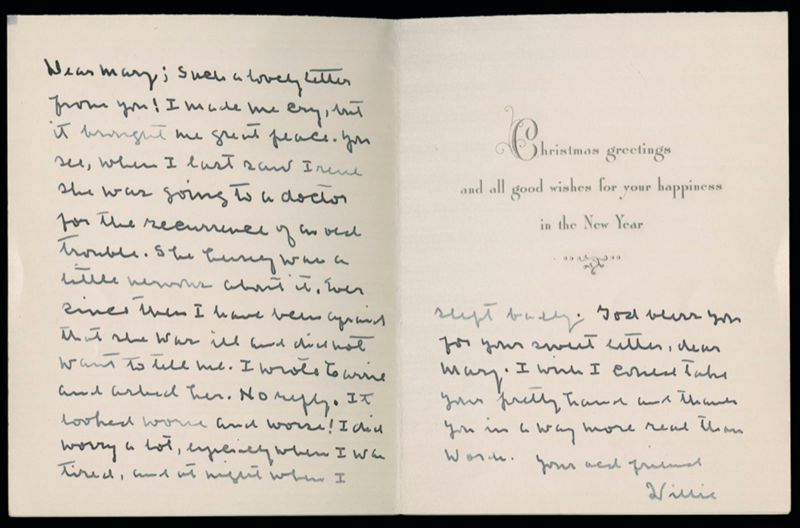 Dear Mary; Such a lovely letter
from you! I made me cry, but
it brought me great peace. You
see, when I last saw Irene
she was going to a doctor
for the recurrence of an old
trouble. She was a
little nervous about it. Ever
since then I have been afraid
that she was ill and did not
want to tell me. I wrote to
and asked her. No reply. It
looked worse and worse! I did
worry a lot, especially when I was
tired, and at night when I
Christmas greetings
and all good wishes for your happiness
in the New Year
slept badly. God bless you
for your sweet letter, dear
Mary. I wish I could take
your pretty hand and thank
you in a way more real than
words. Your old friend
Willie